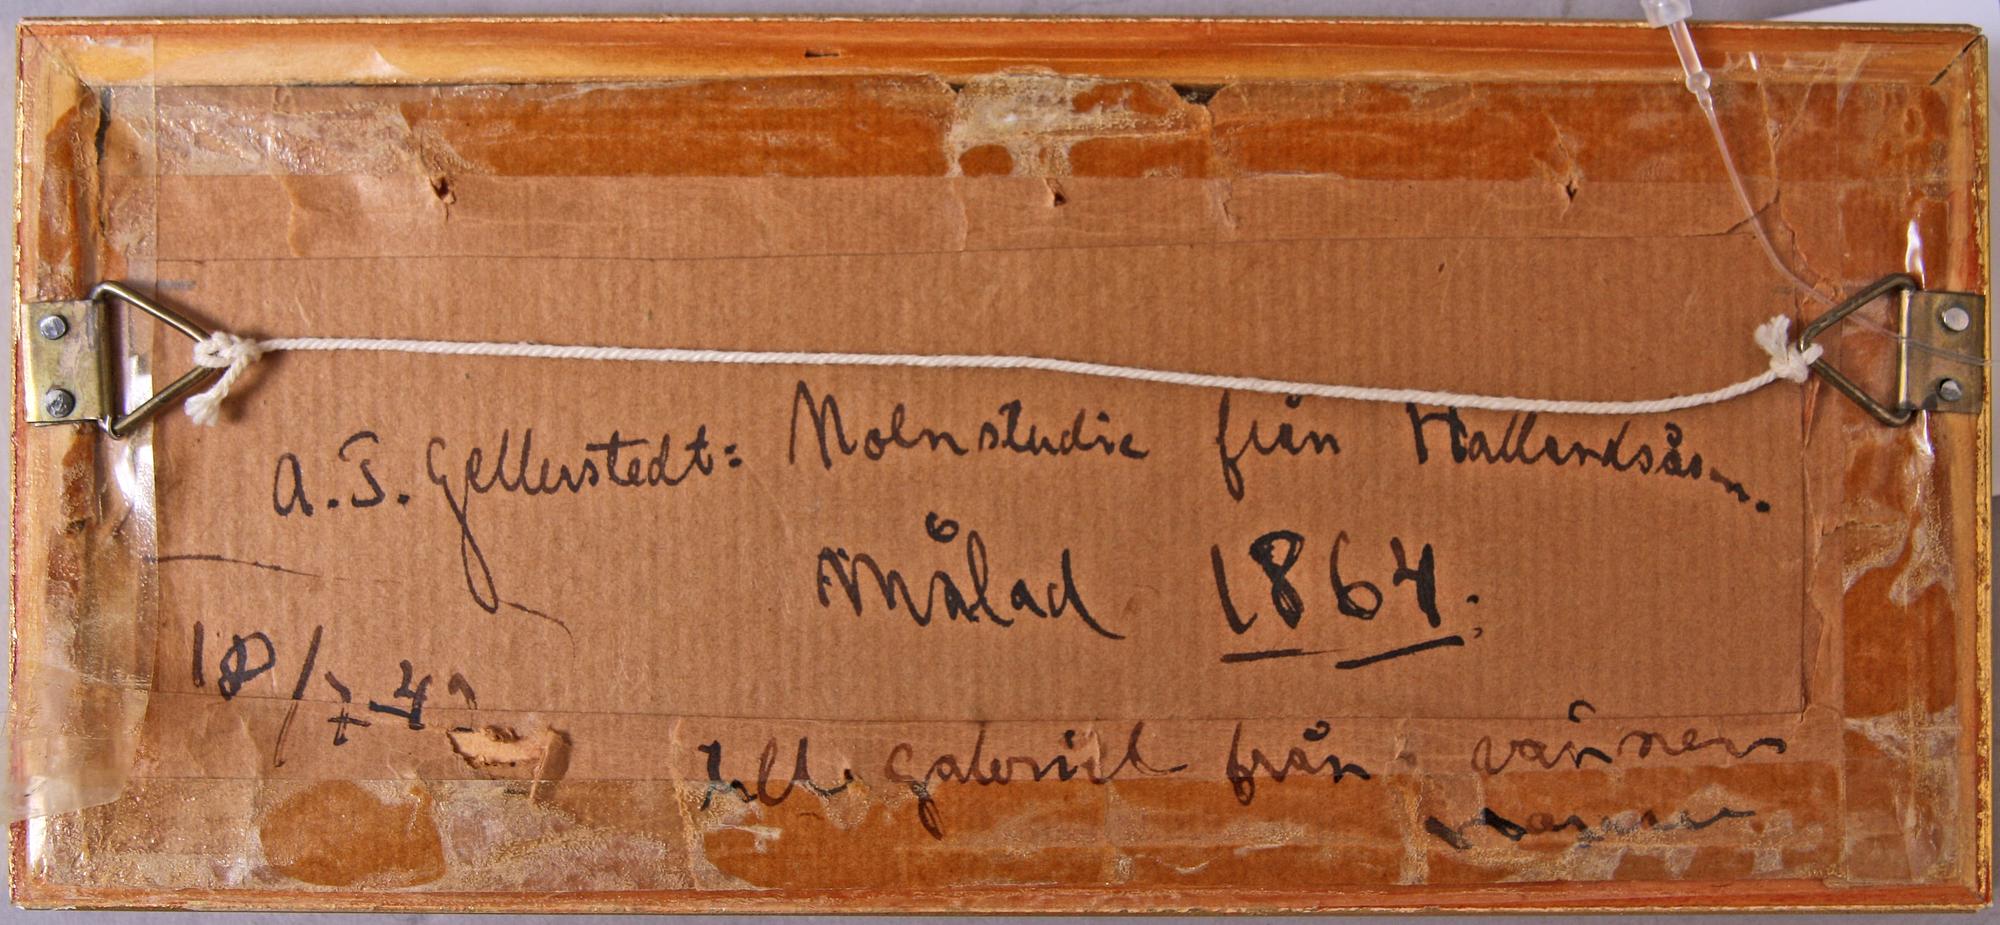 A.T. Gellerstedt: Molnstudie från Hallandsåsen.
Målad 1864.
18/7 42
till Gabriel från vännen